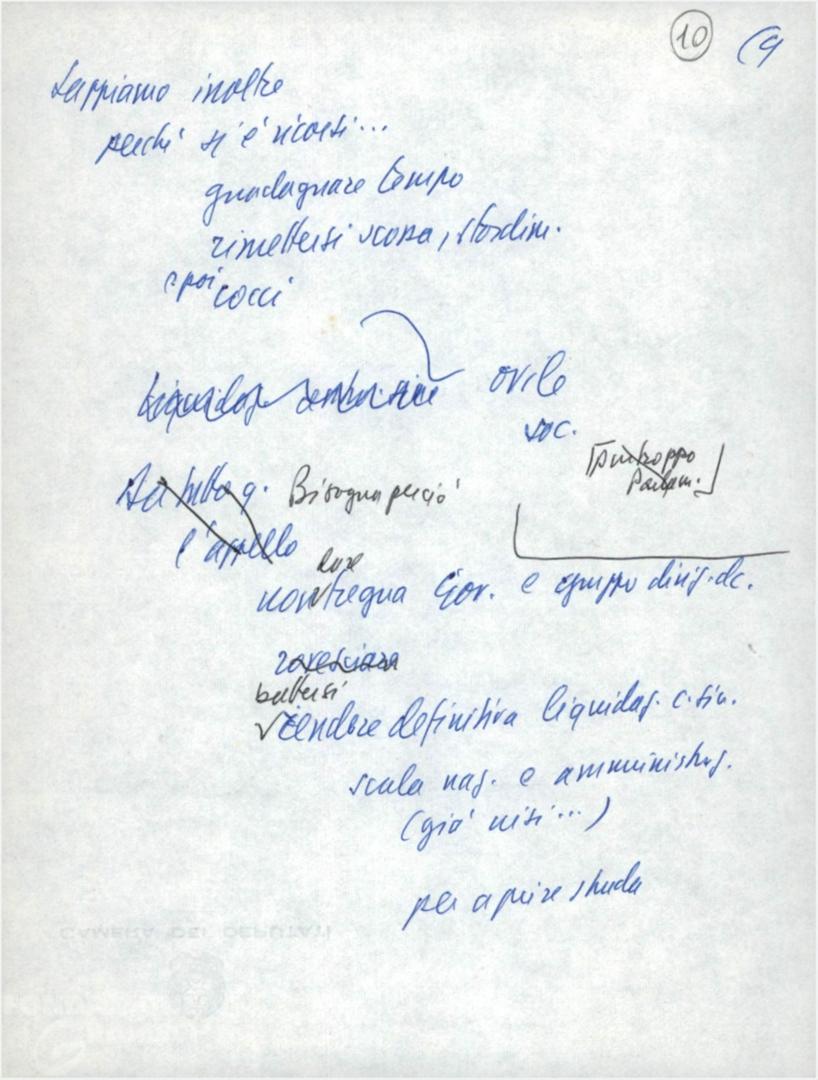 10 (9
Sappiamo inoltre
perché si è ricorsi...
guadagnare tempo
rimettersi scossa, stordim.
e poi cocci
Liquidaz. ovile
soc.
[Purtroppo
Parlam.]
Da tutto q. Bisogna perciò
l'appello
non dare tregua Gov. e gruppo dirig. dc.
rovesciare
battersi
rendere definitiva liquidaz. c. sin.
scala naz. e amministraz.
(già visi...)
per aprire strada
CAMERA DEI DEPUTATI